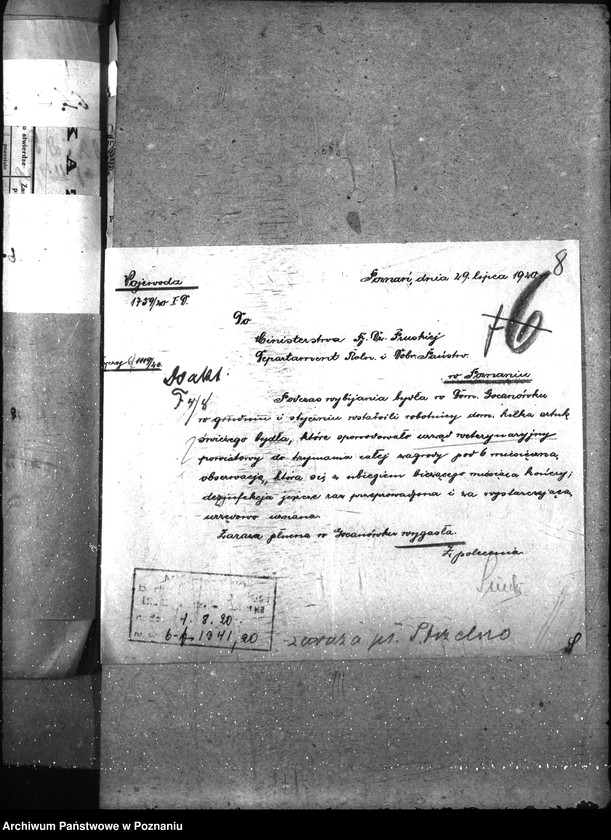 Wojewoda
1759/20 I P.
Poznań, dnia 29. lipca 1920
8
6
Do
Ministerstwa b. Dz. Pruskiej
Departament Roln. i Dóbr. Państw.
w Poznaniu
1119/20.
Do akt.
F 4/8
Podczas wybijania bydła w Dom. Gocanówku
w grudniu i styczniu wstawili robotnicy dom. kilka sztuk
świeżego bydła, które spowodowało urząd weterynaryjny
powiatowy do trzymania całej zagrody pod 6 miesięczną
obserwacją, która się z ubiegiem bieżącego miesiąca kończy;
dezynfekcja jeszcze raz przeprowadzona i za wystarczającą
urzędowo uznana.
Zaraza płucna w Gocanówku wygasła.
Z polecenia
4. 8. 20.
6-A. 1941/20
zaraza pł. Strzelno
Archiwum Państwowe w Poznaniu